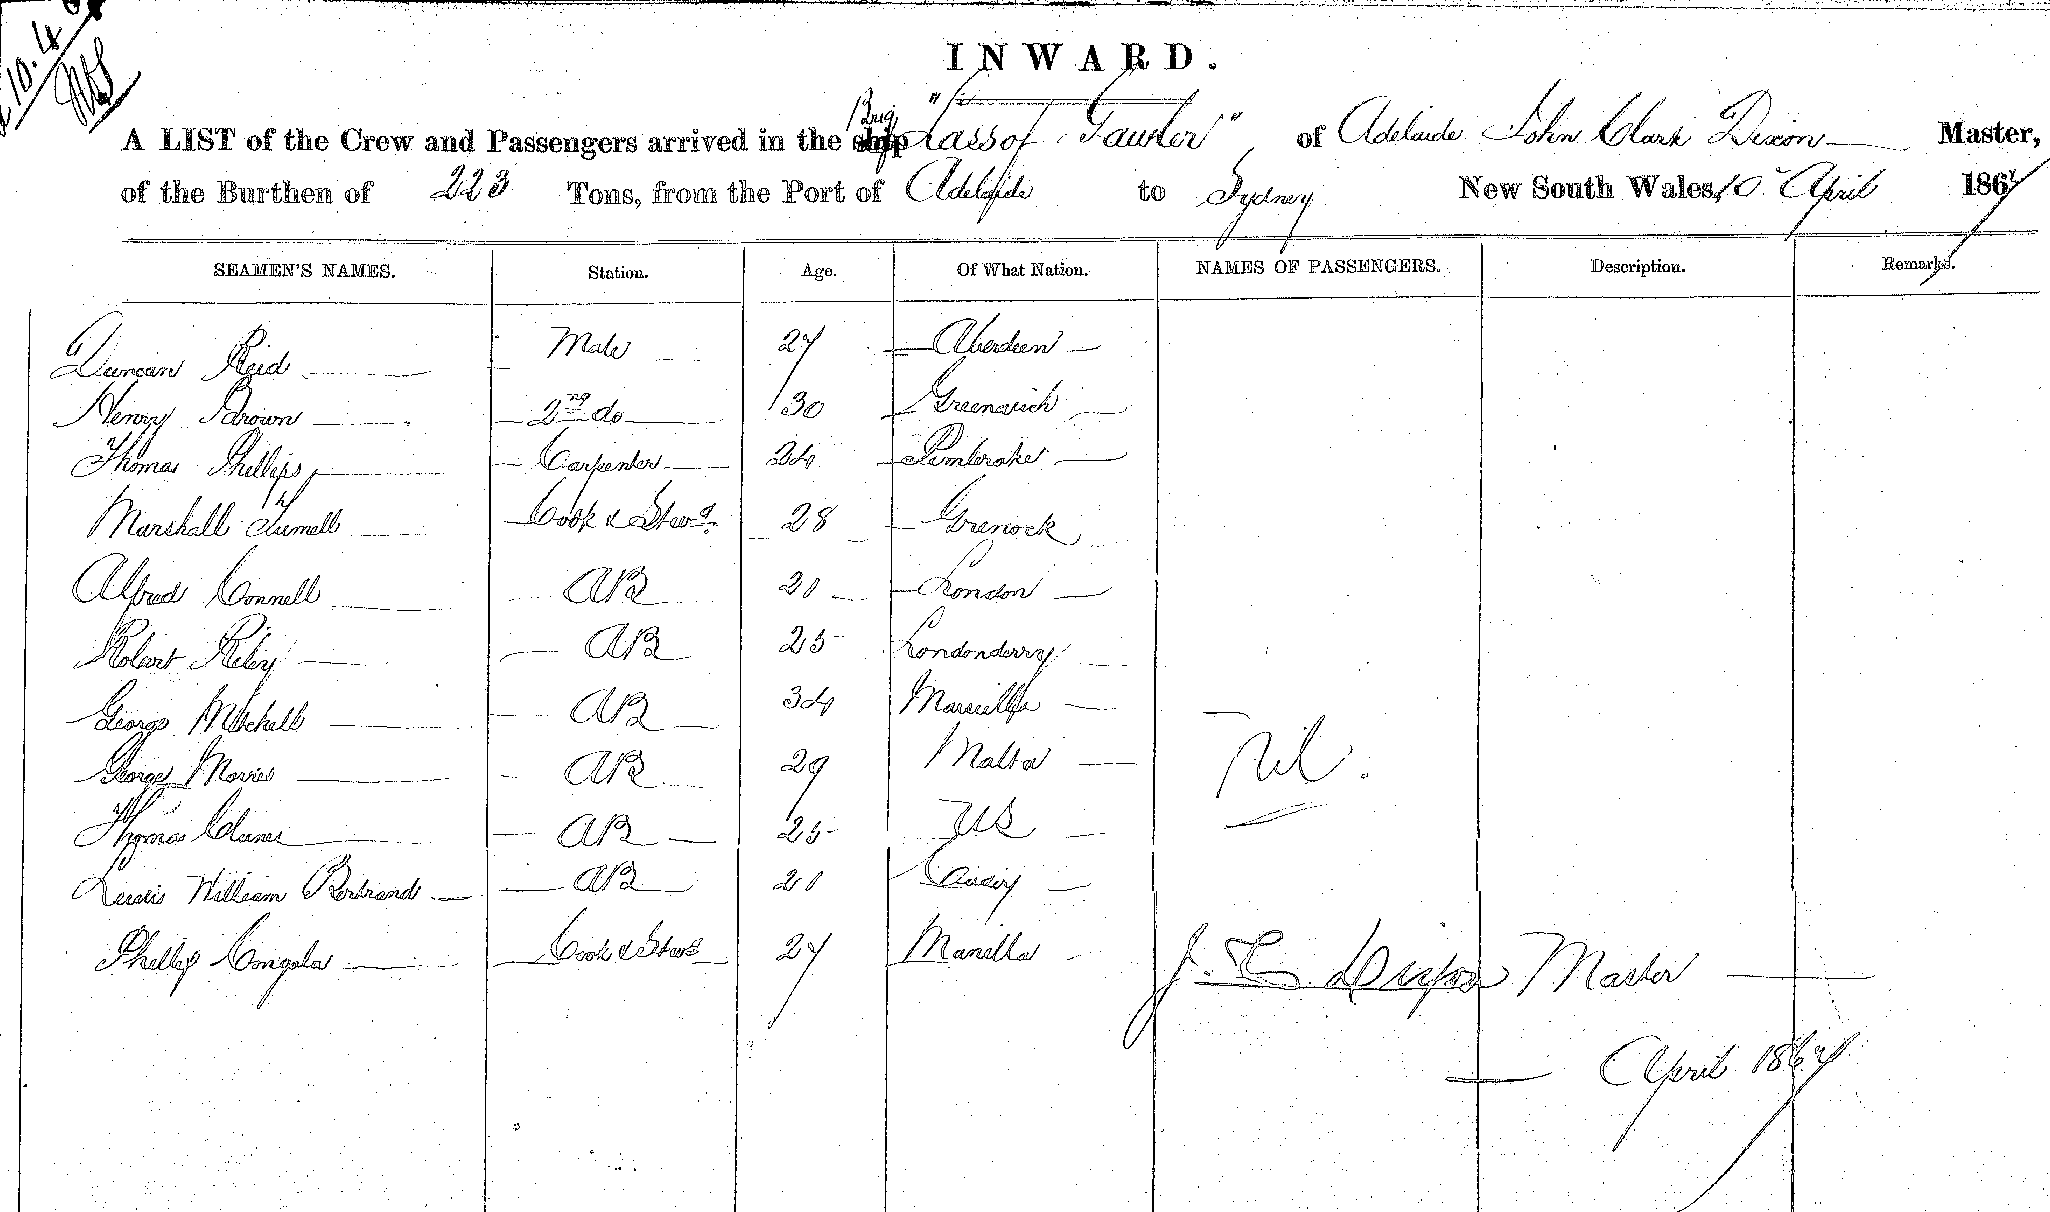 10.4.6
INWARD.
A LIST of the Crew and Passengers arrived in the Brig "Lass of Gawler" of Adelaide John Clark Dixon Master,
of the Burthen of 223 Tons, from the Port of Adelaide to Sydney New South Wales, 10 April 1867
SEAMEN'S NAMES. Station. Age. Of What Nation. NAMES OF PASSENGERS. Description. Remarks.
Duncan Reid Mate 27 Aberdeen
Henry Brown 2nd do 30 Greenwich
Thomas Phillips Carpenter 24 Pembroke
Marshall Cook & Stewd. 28 Grenock
Alfred Connell AB 20 London
Robert Riley AB 25 Londonderry
George Mitchell AB 34 Marseilles
George Morris AB 29 Malta
Nil.
Thomas AB 25 US
Lewis William Bertrand AB 20
Phillip Congola Cook & Stewd 27 Manilla
J. C. Dixon Master
April 1867